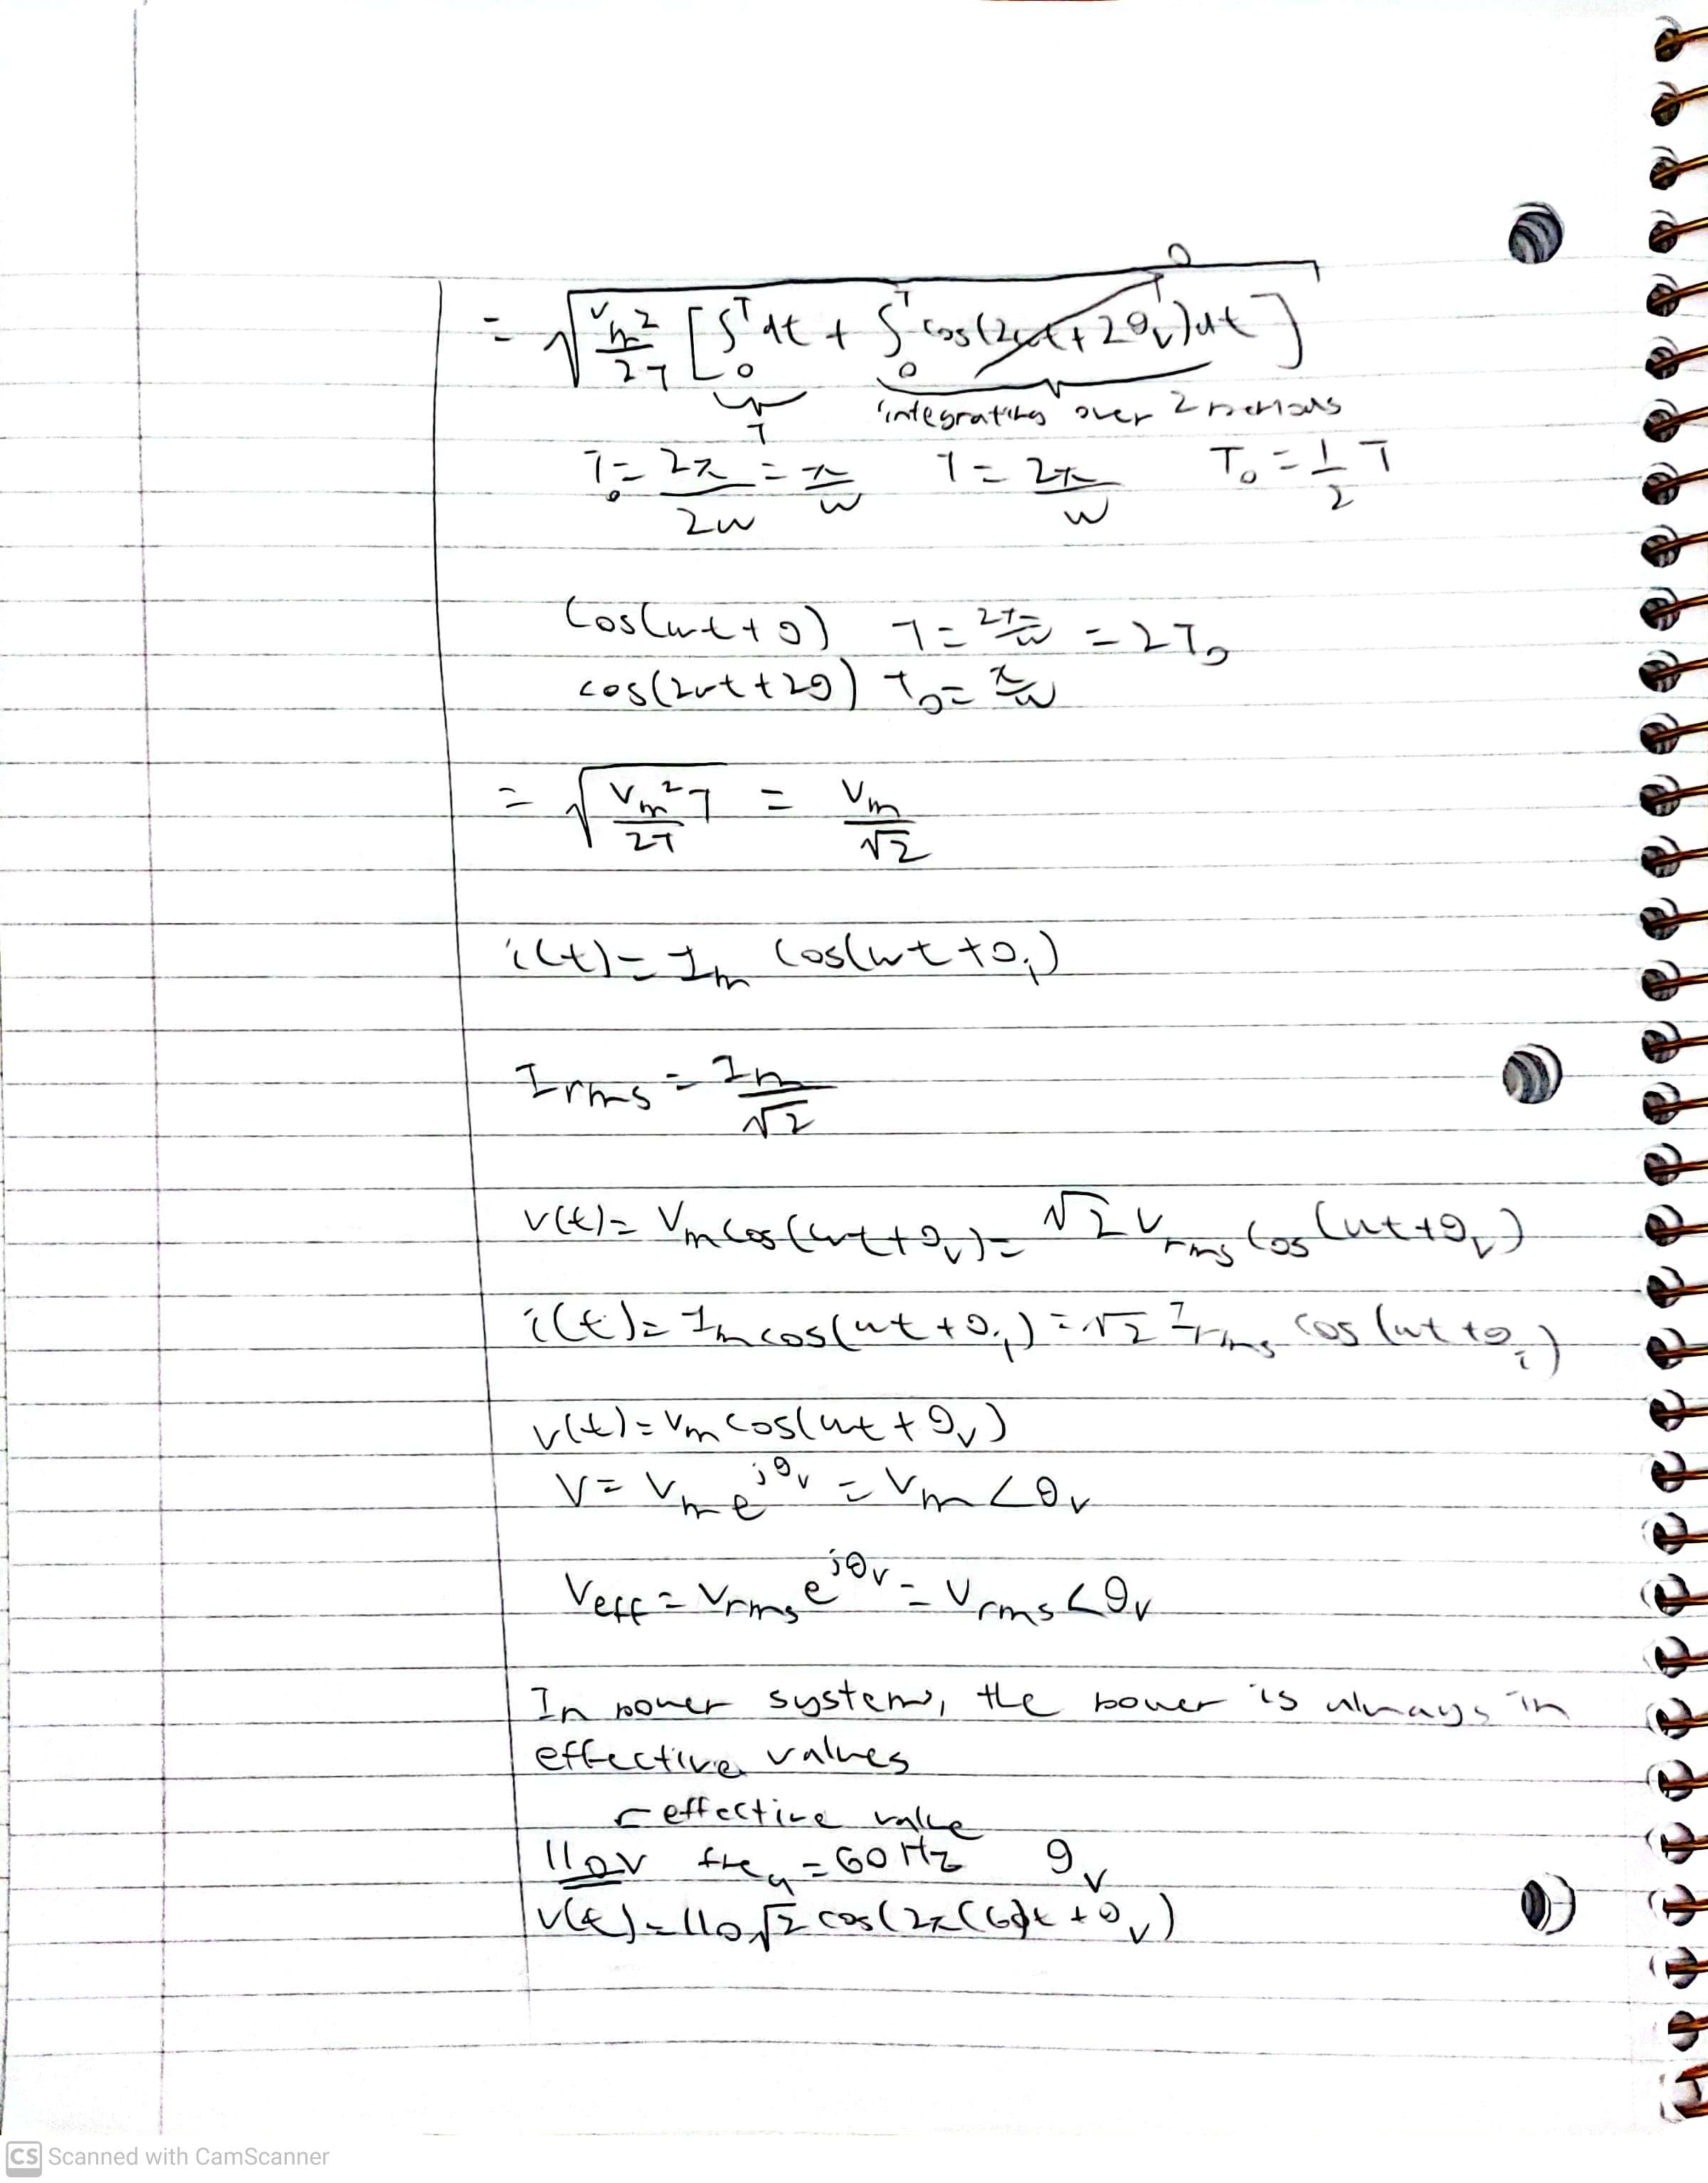 0
= √(Vm²/2T [∫₀ᵀ dt + ∫₀ᵀ cos(2ωt+2θᵥ)dt])
T integrating over 2 periods
T₀ = 2π/2ω = π/ω T = 2π/ω T₀ = 1/2 T
cos(ωt+θ) T = 2π/ω = 2T₀
cos(2ωt+2θ) T₀ = π/ω
= √(Vm²T/2T) = Vm/√2
i(t) = Im cos(ωt+θᵢ)
Irms = Im/√2
v(t) = Vm cos(ωt+θᵥ) = √2 Vrms cos(ωt+θᵥ)
i(t) = Im cos(ωt+θᵢ) = √2 Irms cos(ωt+θᵢ)
v(t) = Vm cos(ωt+θᵥ)
V = Vm e^jθᵥ = Vm ∠θᵥ
Veff = Vrms e^jθᵥ = Vrms ∠θᵥ
In power systems, the power is always in
effective values
effective value
110V freq = 60 Hz θᵥ
v(t) = 110√2 cos(2π(60)t + θᵥ)
CS Scanned with CamScanner